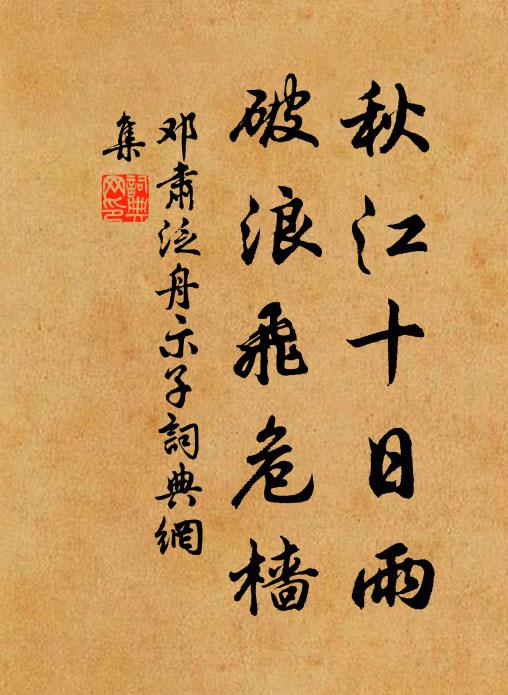 秋江十日雨
破浪飛危檣
邓肅泛舟示子詞典網
集
詞典網印